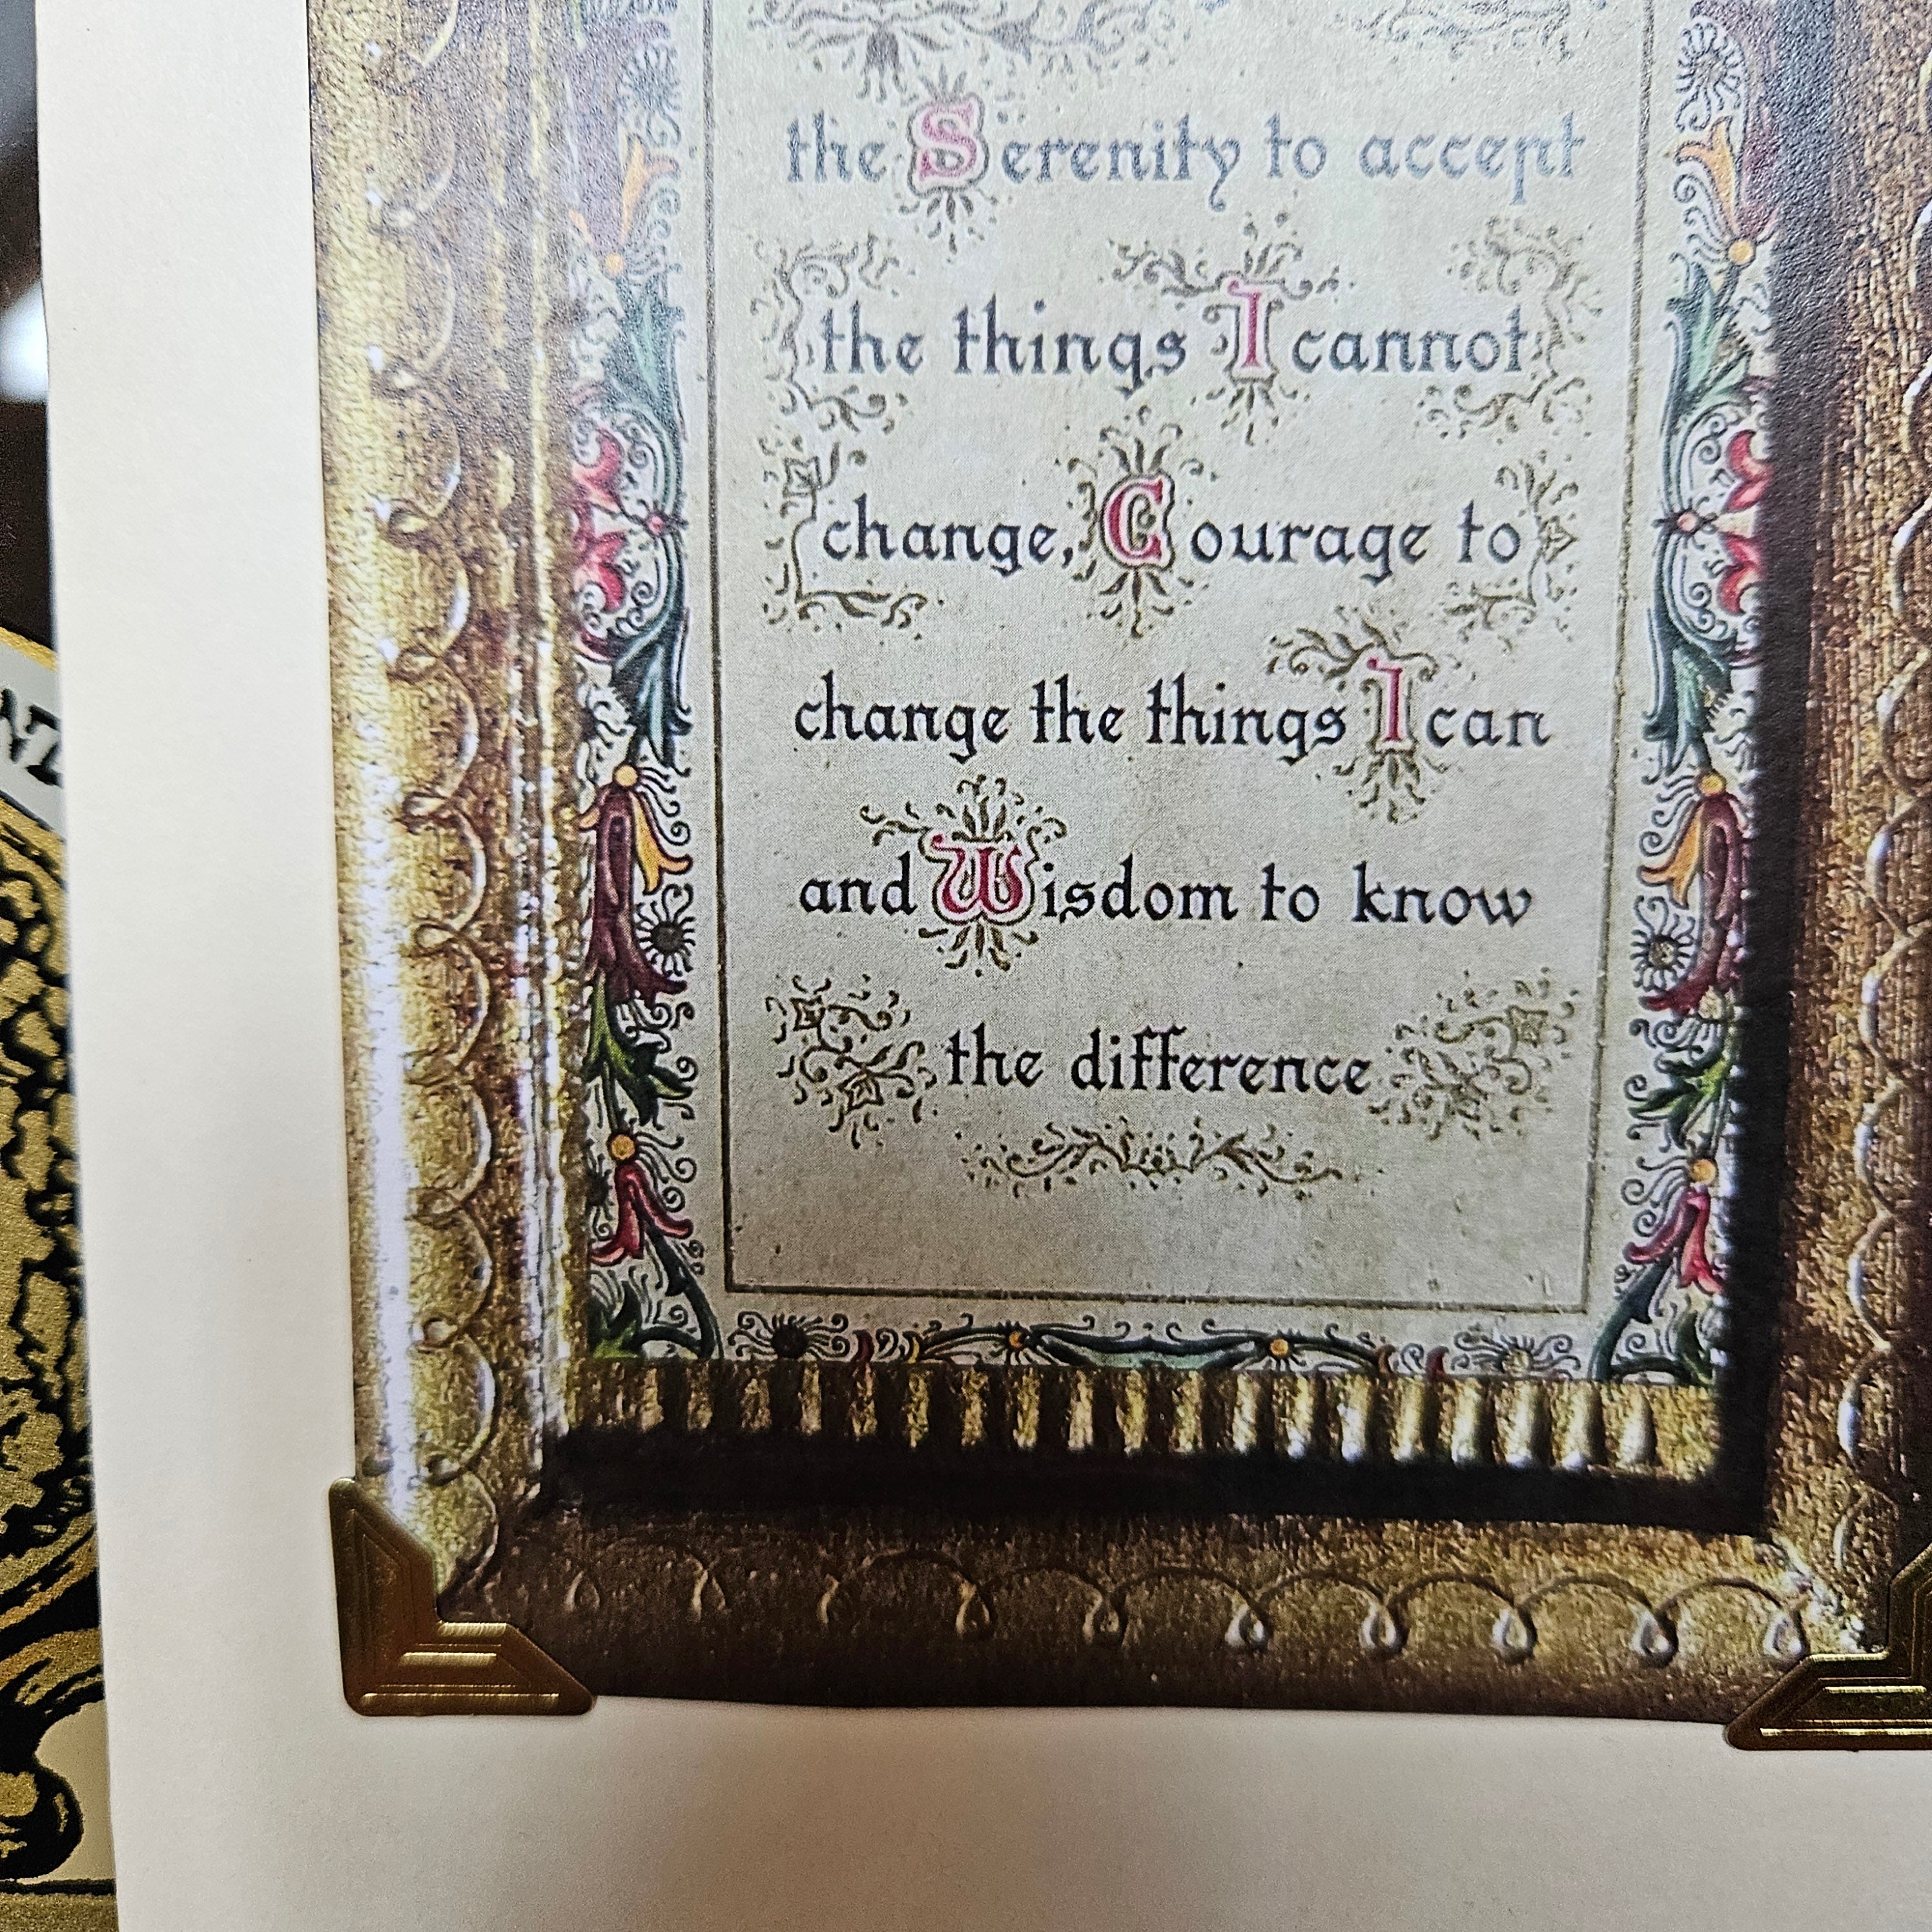 the Serenity to accept
the things I cannot
change, Courage to
change the things I can
and Wisdom to know
the difference